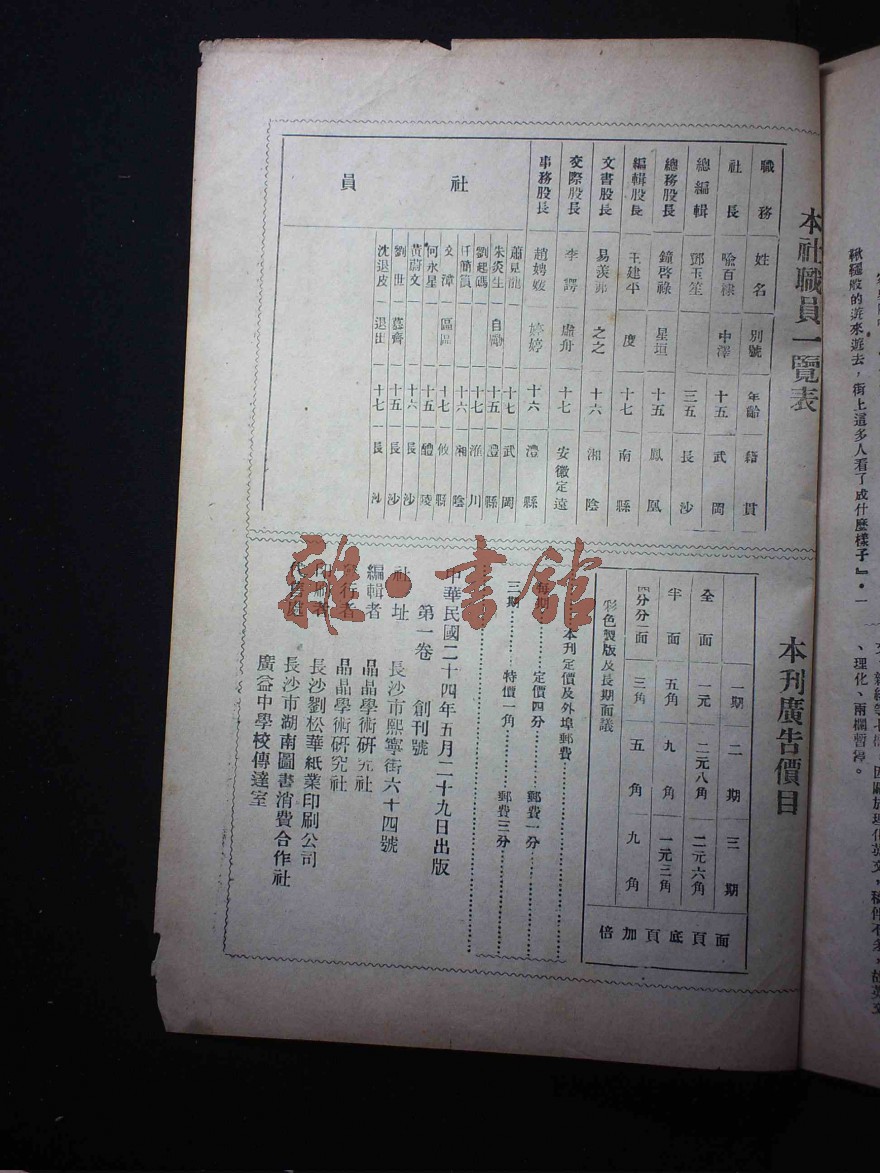 本社職員一覽表
職務 姓名 別號 年齡 籍貫
社長 喻百祿 中澤 十五 武岡
總編輯 鄧玉笙 三五 長沙
總務股長 鐘啓祿 星垣 十五 鳳凰
編輯股長 王建平 度 十七 南縣
文書股長 易羡 之之 十六 湘陰
交際股長 李諤 虛舟 十七 安徽定遠
事務股長 趙娉婷 十六 澧縣
社員
蕭見龍 十七 武岡
朱炎生 自勵 十五 澧縣
劉起 十七 川
簡 十六 湘陰
文漳 區區 十七 攸縣
何永星 十五 醴陵
黃蔚文 十六 長沙
劉世 慕齊 十五 長沙
沈退皮 退出 十七 長沙
本刊廣告價目
一期 二期 三期
全面 一元 二元八角 二元六角
半面 五角 九角 一元三角
四分之一面 三角 五角 九角
面頁底頁加倍
彩色製版及長期面議
本刊定價及外埠郵費
每期 定價四分 郵費一分
三期 特價一角 郵費三分
中華民國二十四年五月二十九日出版
第一卷 創刊號
社址 長沙市熙寧街六十四號
編輯者 晶晶學術研究社
發行者 晶晶學術研究社
印刷者 長沙劉松華紙業印刷公司
代售處 長沙市湖南圖書消費合作社
廣益中學校傳達室
雜·書館
敗的遊來遊去，街上這多人看了成什麼樣子』。一
、理化、兩欄暫停。